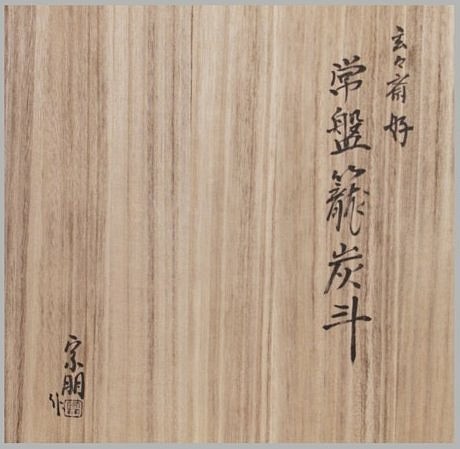 玄々斎好
常盤籠炭斗
宗朋
作